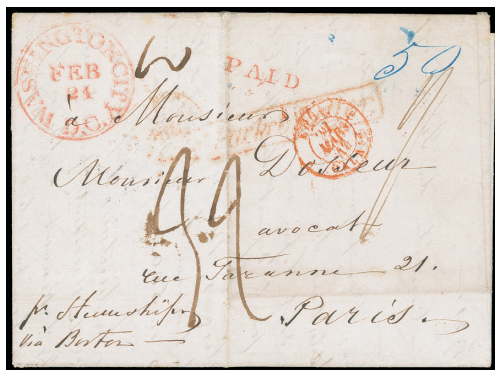 WASHINGTON CITY D.C.
FEB
24
PAID
50
à Monsieur
Monsieur Dosseur
avocat
rue Taranne 21.
Paris.
pr. Steamship
via Boston